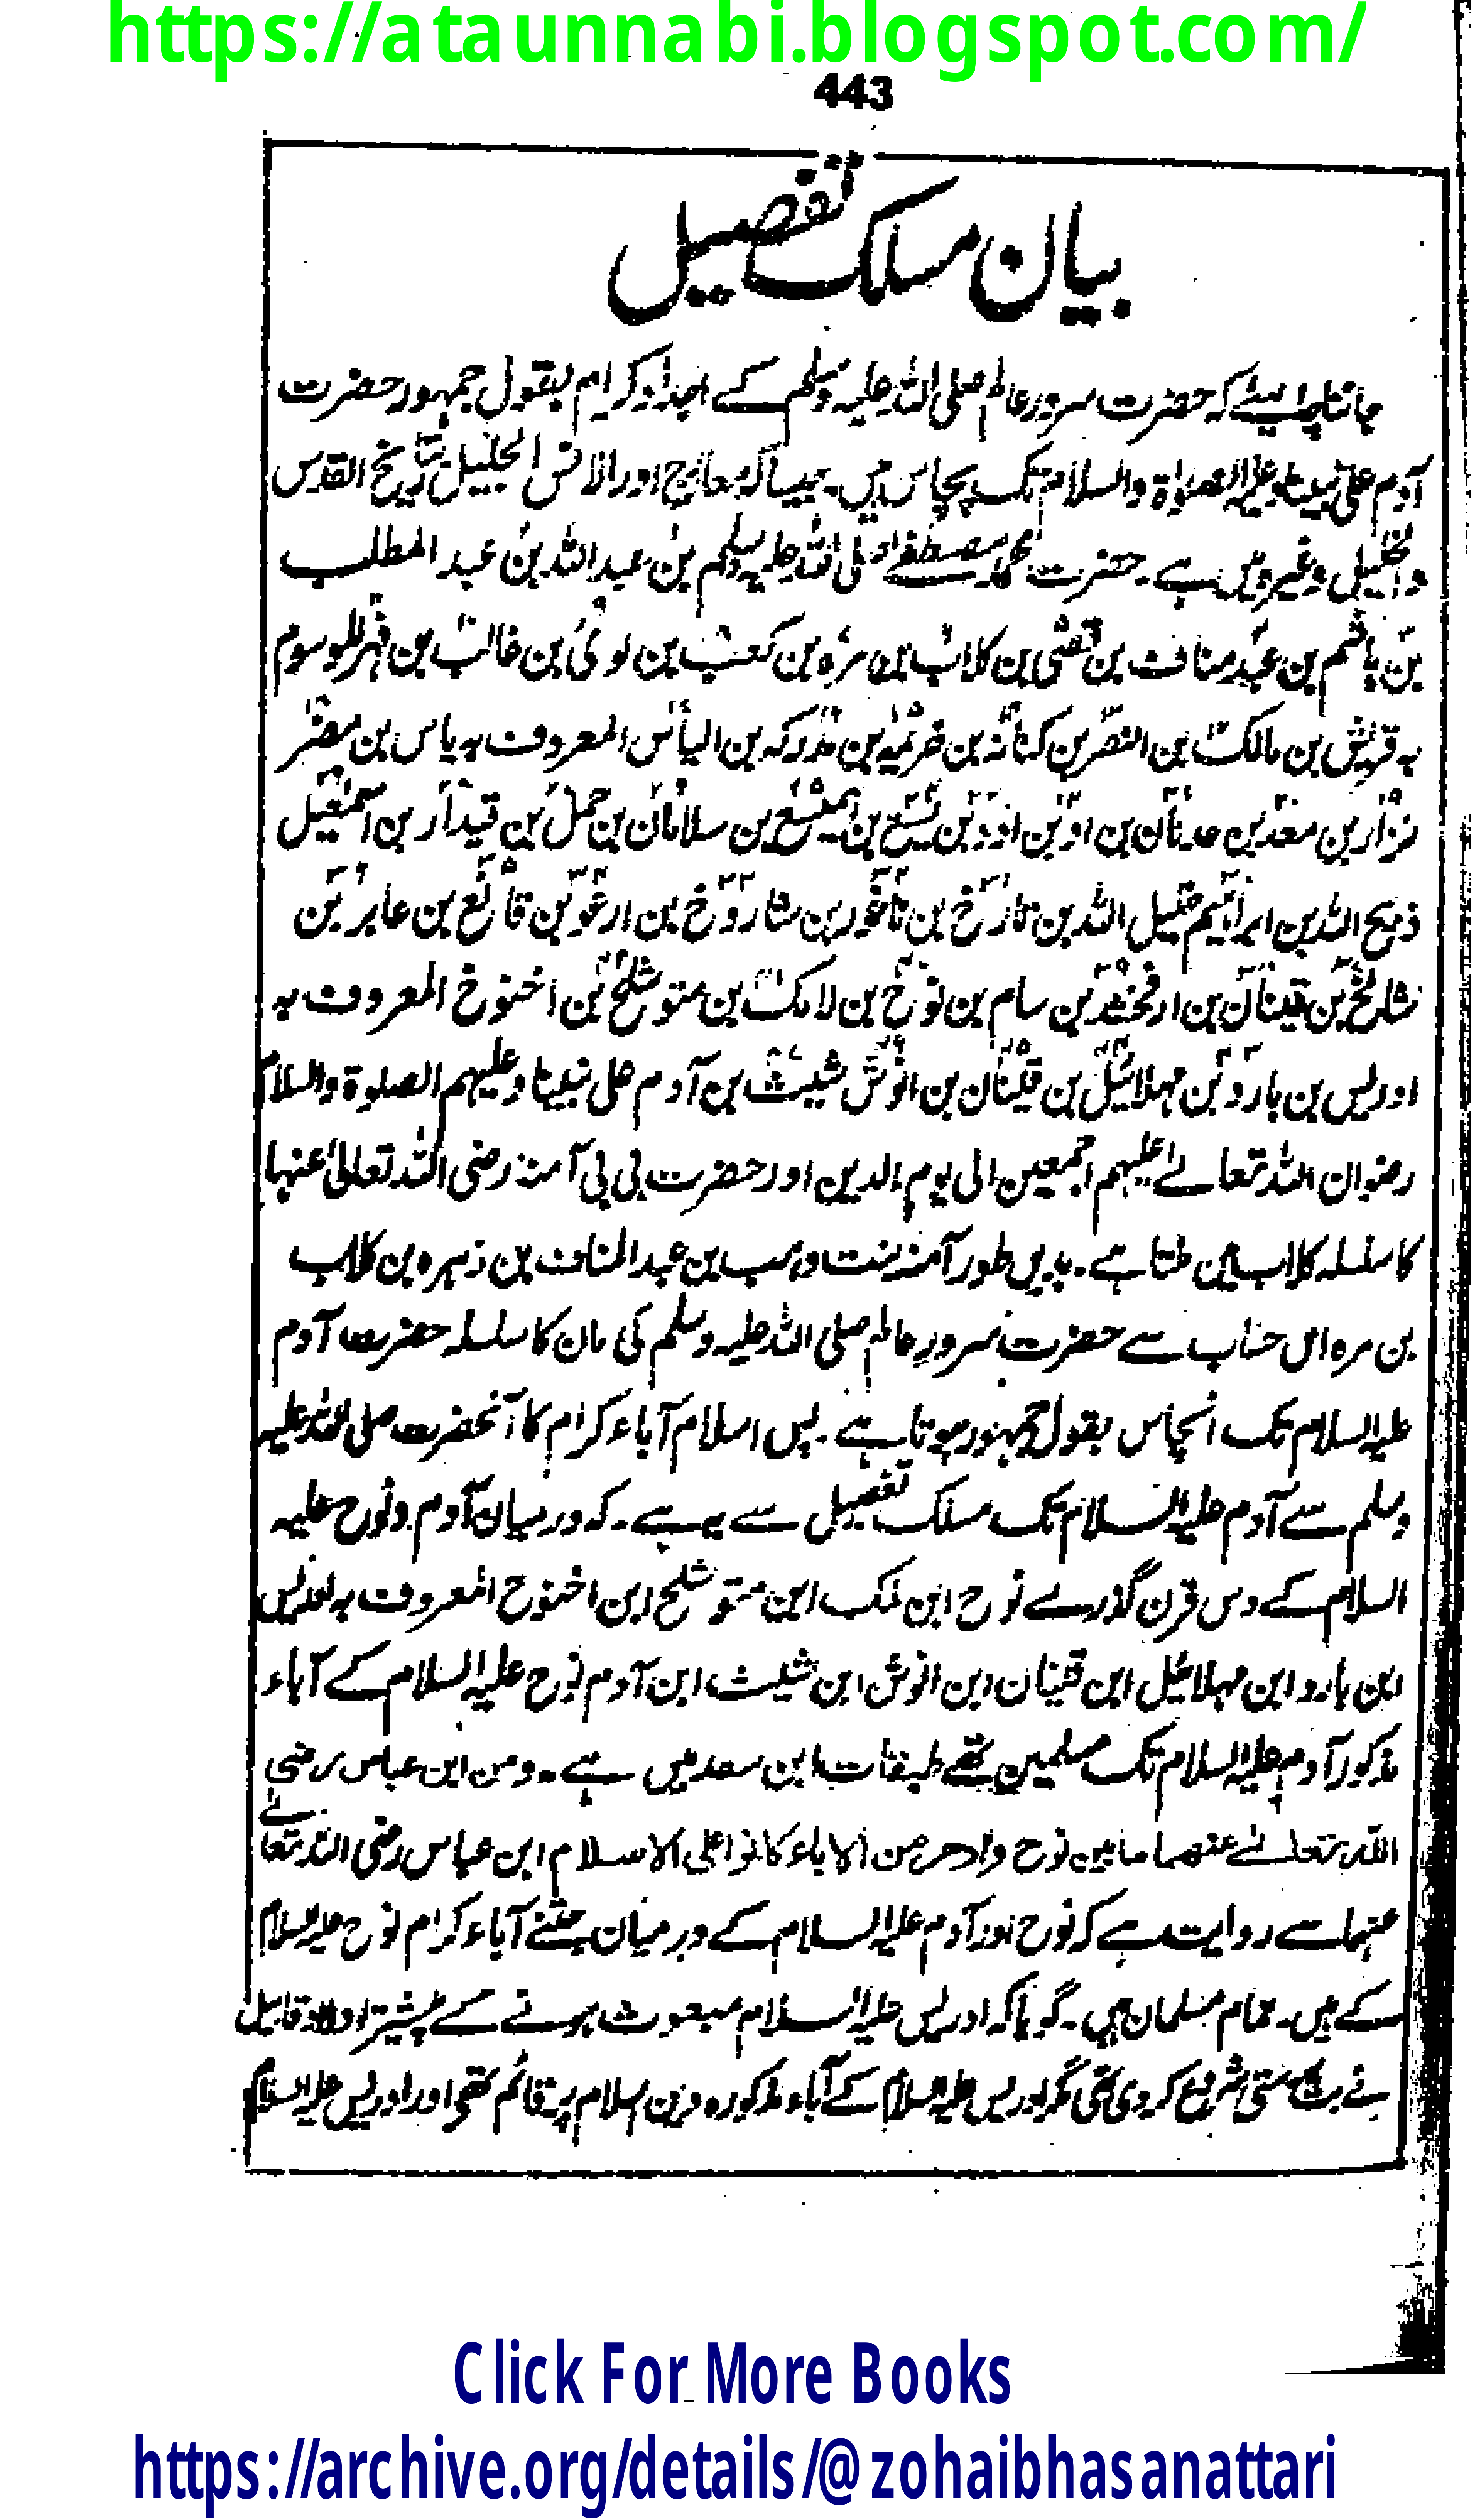 https://ataunnabi.blogspot.com/
443
بیان مسلک تفصیل
جاننا چاہیئے کہ حضرت سرور عالم صلی اللہ علیہ وسلم کے اجداد کرام بقول جمہور حضرت
آدم علی نبینا و علیہ الصلوٰۃ والسلام تک پچاس ہیں۔ جیسا کہ معارج اور الانس الجلیل تاریخ القدس
والخلیل وغیرہ میں ہے۔ حضرت محمد مصطفےٰ صلی اللہ علیہ وسلم بن عبد اللہ بن عبد المطلب
بن ہاشم بن عبد مناف بن قصّی بن کلاب بن مرہ بن کعب بن لوئی بن غالب بن فہر الموسوم
بہ قریش بن مالک بن النضر بن کنانہ بن خزیمہ بن مدرکہ بن الیاس المعروف بہ یاس بن مضر
نزار بن معد بن عدنان بن اد بن اودد بن یسع بن الہمیسع بن سلامان بن حمل بن قیدار بن اسمٰعیل
ذبیح اللہ بن ابراہیم خلیل اللہ بن تارخ بن ناخور بن شاروخ بن ارغو بن فالغ بن عابر بن
شالخ بن قینان بن ارفخشد بن سام بن نوح بن لامک بن متوشلخ بن اخنوخ المعروف بہ
ادریس بن یارد بن مہلائیل بن قینان بن انوش شیث بن آدم علی نبینا و علیہم الصلوۃ والسلام
رضوان اللہ تعالےٰ علیہم اجمعین الی یوم الدین اور حضرت بی بی آمنہ رضی اللہ تعالیٰ عنہا
کا سلسلہ کلاب میں ملتا ہے۔ بدیں طور آمنہ بنت وہب بن عبد المناف بن زہرہ بن کلاب
بن مرہ اس حساب سے حضرت سرور عالم صلی اللہ علیہ وسلم کی ماں کا سلسلہ حضرت آدم
علیہ السلام تک انچاس بقول جمہور ہوتا ہے۔ پس اسلام آباء کرام کا آنحضرت صلی اللہ علیہ
وسلم سے آدم علیہ السلام تک مسلک تفصیل سے یہ ہے۔ کہ درمیان آدم و نوح علیہ
السلام کے دس قرن گذرے نوح ابن لمک ابن متوشلح ابن اخنوح المعروف بہ ادریس
ابن یارد ابن مہلائیل ابن قینان ابن انوش ابن شیث ابن آدم نوح علیہ السلام کے آباء
مذکور آدم علیہ السلام تک مسلمین تھے طبقات ابن سعد میں ہے۔ ومن ابن عباس رضی
اللہ تعالےٰ عنھما ما بین نوح واٰدھر من الاٰباء کانوا علی الاسلام ابن عباس رضی اللہ تعالےٰ
عنہما سے روایت ہے کہ نوح اور آدم علیہ السلام کے درمیان جتنے آباء کرام نوح علیہ السلام
کے ہیں۔ تمام مسلمان ہیں۔ گویا کہ ادریس علیہ السلام مبعوث ہونے کے پیشتر اولاد قابیل
نے بت پرستی شروع کر دی تھی مگر ادریس علیہ السلام کے آباء مذکورہ دین اسلام پر قائم تھے اور ادریس علیہ السلام
Click For More Books
https://archive.org/details/@zohaibhasanattari